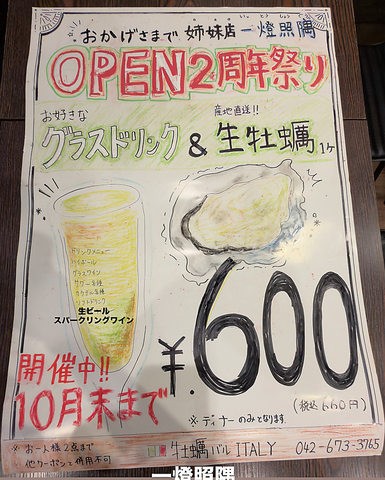 おかげさまで 姉妹店 一燈照隅
いっとうしょうぐう
OPEN2周年祭り
お好きな
産地直送!!
グラスドリンク & 生牡蠣1ヶ
ドリンクメニュー
ハイボール
グラスワイン
サワー各種
カクテル各種
ソフトドリンク
生ビール
スパークリングワイン
¥600
(税込 660円)
開催中!!
10月末まで
※ディナーのみとなります
※お一人様2点まで
他クーポンと併用不可
牡蠣バル ITALY 042-673-3765
一燈照隅